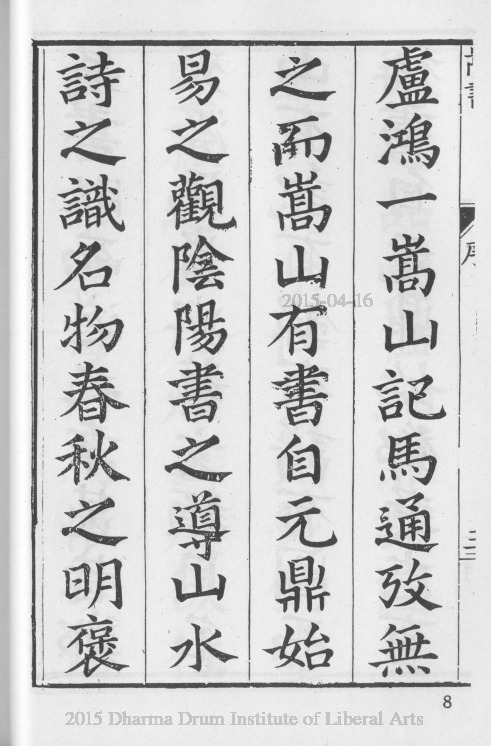 盧鴻一嵩山記馬通攷無
之而嵩山有書自元鼎始
易之觀陰陽書之導山水
詩之識名物春秋之明褒
序
三
2015-04-16
8
2015 Dharma Drum Institute of Liberal Arts